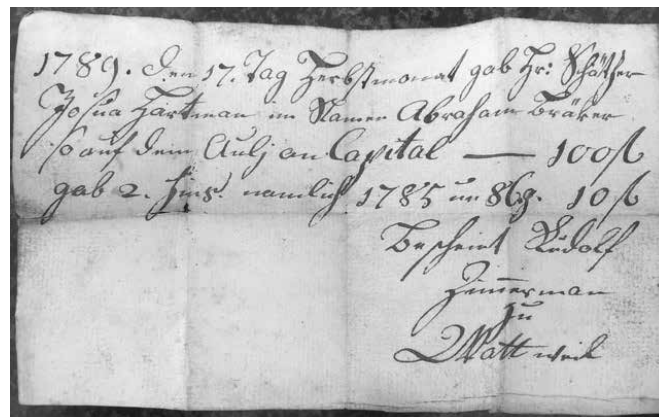 1789. Den 17. Tag Herbstmonat gab Hr: Schätzer
Josua Hartman im Namen Abraham Bräker
so auf dem Aulj an Capital — 100 fl
gab 2. Zins. namlich 1785 un 86g. 10 fl
Bescheint Rudolf
Zimmerman
zu
Wattweil